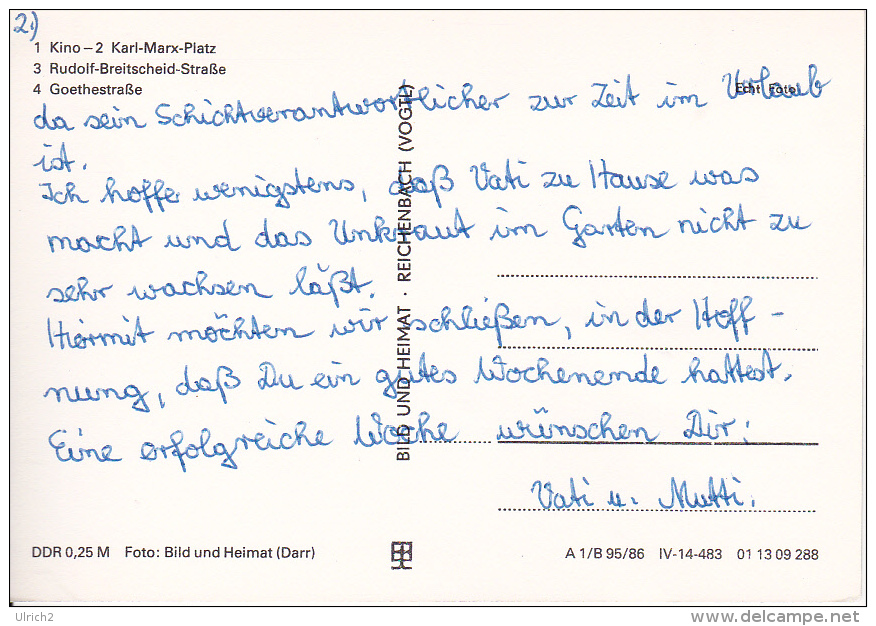 2.)
1 Kino – 2 Karl-Marx-Platz
3 Rudolf-Breitscheid-Straße
4 Goethestraße
Echt Foto
da sein Schichtverantwortlicher zur Zeit im Urlaub
ist.
Ich hoffe wenigstens, daß Vati zu Hause was
macht und das Unkraut im Garten nicht zu
sehr wachsen läßt.
Hiermit möchten wir schließen, in der Hoff-
nung, daß Du ein gutes Wochenende hattest.
Eine erfolgreiche Woche wünschen Dir:
Vati u. Mutti.
BILD UND HEIMAT · REICHENBACH (VOGTL)
DDR 0,25 M Foto: Bild und Heimat (Darr)
A 1/B 95/86 IV-14-483 01 13 09 288
Ulrich2
www.delcampe.net